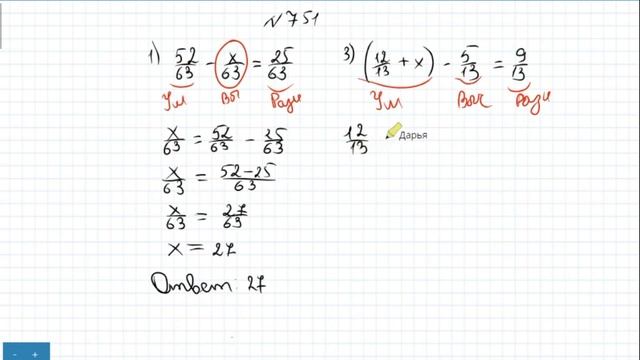 N 751
1) 52/63 - x/63 = 25/63
Ум Выч Разн
x/63 = 52/63 - 25/63
x/63 = 52-25/63
x/63 = 27/63
x = 27
Ответ: 27
3) (12/13 + x) - 5/13 = 9/13
Ум Выч Разн
12/13
Дарья
- +